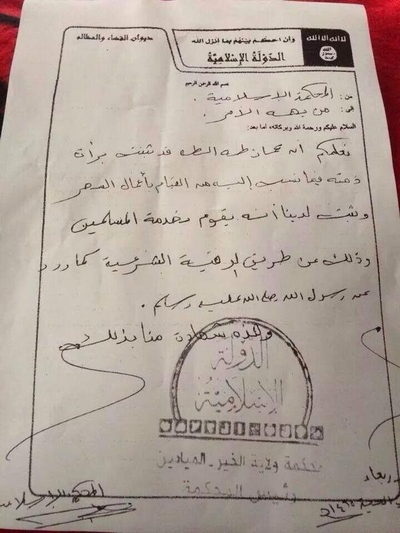 لا اله الا الله
الله رسول محمد
وأن احكم بينهم بما أنزل الله
الدولة الإسلامية
ديوان القضاء والمظالم
بسم الله الرحمن الرحيم
من: المحكمة الإسلامية.
الى: من يهمه الأمر.
السلام عليكم ورحمة الله وبركاته، أما بعد:
نعلمكم ان طه قد ثبتت برأة
ذمته فيما نسب إليه من القيام بأعمال السحر
وثبت لدينا أنه يقوم بخدمة المسلمين
وذلك عن طريق الرقية الشرعية كما ورد
عن رسول الله صلى الله عليه وسلم.
وهذه شهادة منا بذلك
الدولة
الإسلامية
محكمة ولاية الخير - الميادين
المحكمة